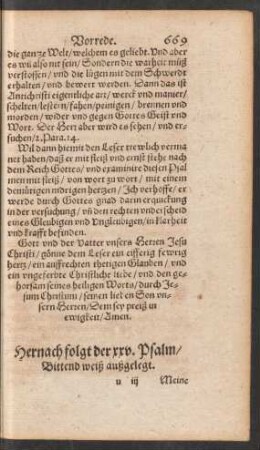 Vorrede. 669
die gantze Welt/ welchem es geliebt. Und aber
es wil also nit sein/ Sondern die warheit můß
verstossen/ und die lügen mit dem Schwerdt
erhalten/ und bewert werden. Dann das ist
Antichristi eigentliche art/ werck und manier/
schelten/ lestern/ fahen/ peinigen/ brennen und
morden/ wider und gegen Gottes Geist und
Wort. Der Herr aber wird es sehen/ und er-
suchen/ 2. Para. 24.
Wil dann hiemit den Leser trewlich verma-
net haben/ daß er mit fleiß und ernst stehe nach
dem Reich Gottes/ und examinire diesen Psal-
men mit fleiß/ von wort zu wort/ mit einem
demütigen nidrigen hertzen/ Ich verhoffe/ er
werde durch Gottes gnad darin erquickung
in der versuchung/ uñ den rechten underscheid
eines Gleubigen und Ungleubigen/ in klarheit
und krafft befinden.
Gott und der Vatter unsers Herren Jesu
Christi/ gönne dem Leser ein eifferig fewrig
hertz/ ein auffrechten thetigen Glauben/ und
ein ungeferbte Christliche liebe/ und den ge-
horsam seines heiligen Worts/ durch Je-
sum Christum/ seinen lieben Son un-
sern Herren/ Dem sey preiß in
ewigkeit/ Amen.
Hernach folgt der xxv. Psalm/
Bittend weiß außgelegt.
u iij Meine